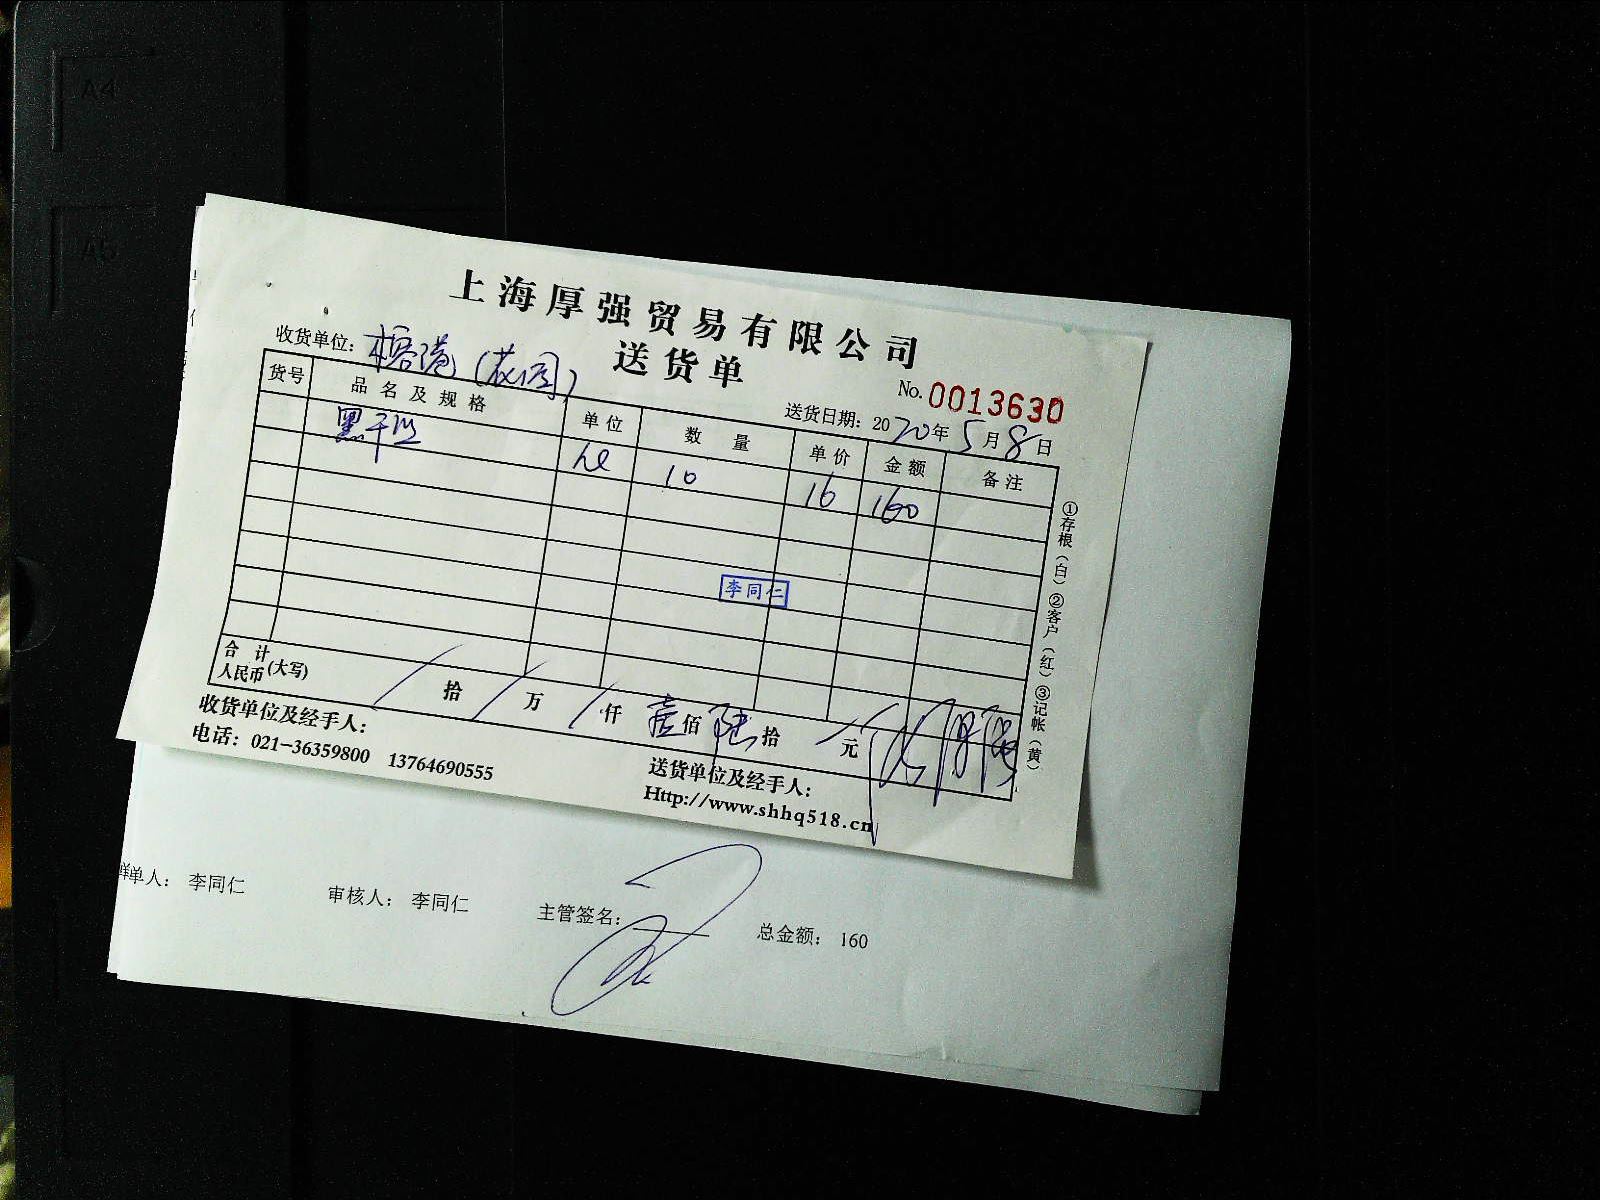 A4
A5
上海厚强贸易有限公司
送货单
收货单位: 榕港(花园)
No. 0013630
送货日期: 2020年5月8日
货号 品名及规格 单位 数量 单价 金额 备注
10 16 160
李同仁
合计
人民币(大写) / 拾 / 万 / 仟 壹佰陆拾 / 元
收货单位及经手人:
送货单位及经手人:
电话: 021-36359800 13764690555
Http://www.shhq518.cn
①存根(白) ②客户(红) ③记帐(黄)
单人: 李同仁 审核人: 李同仁 主管签名: 总金额: 160